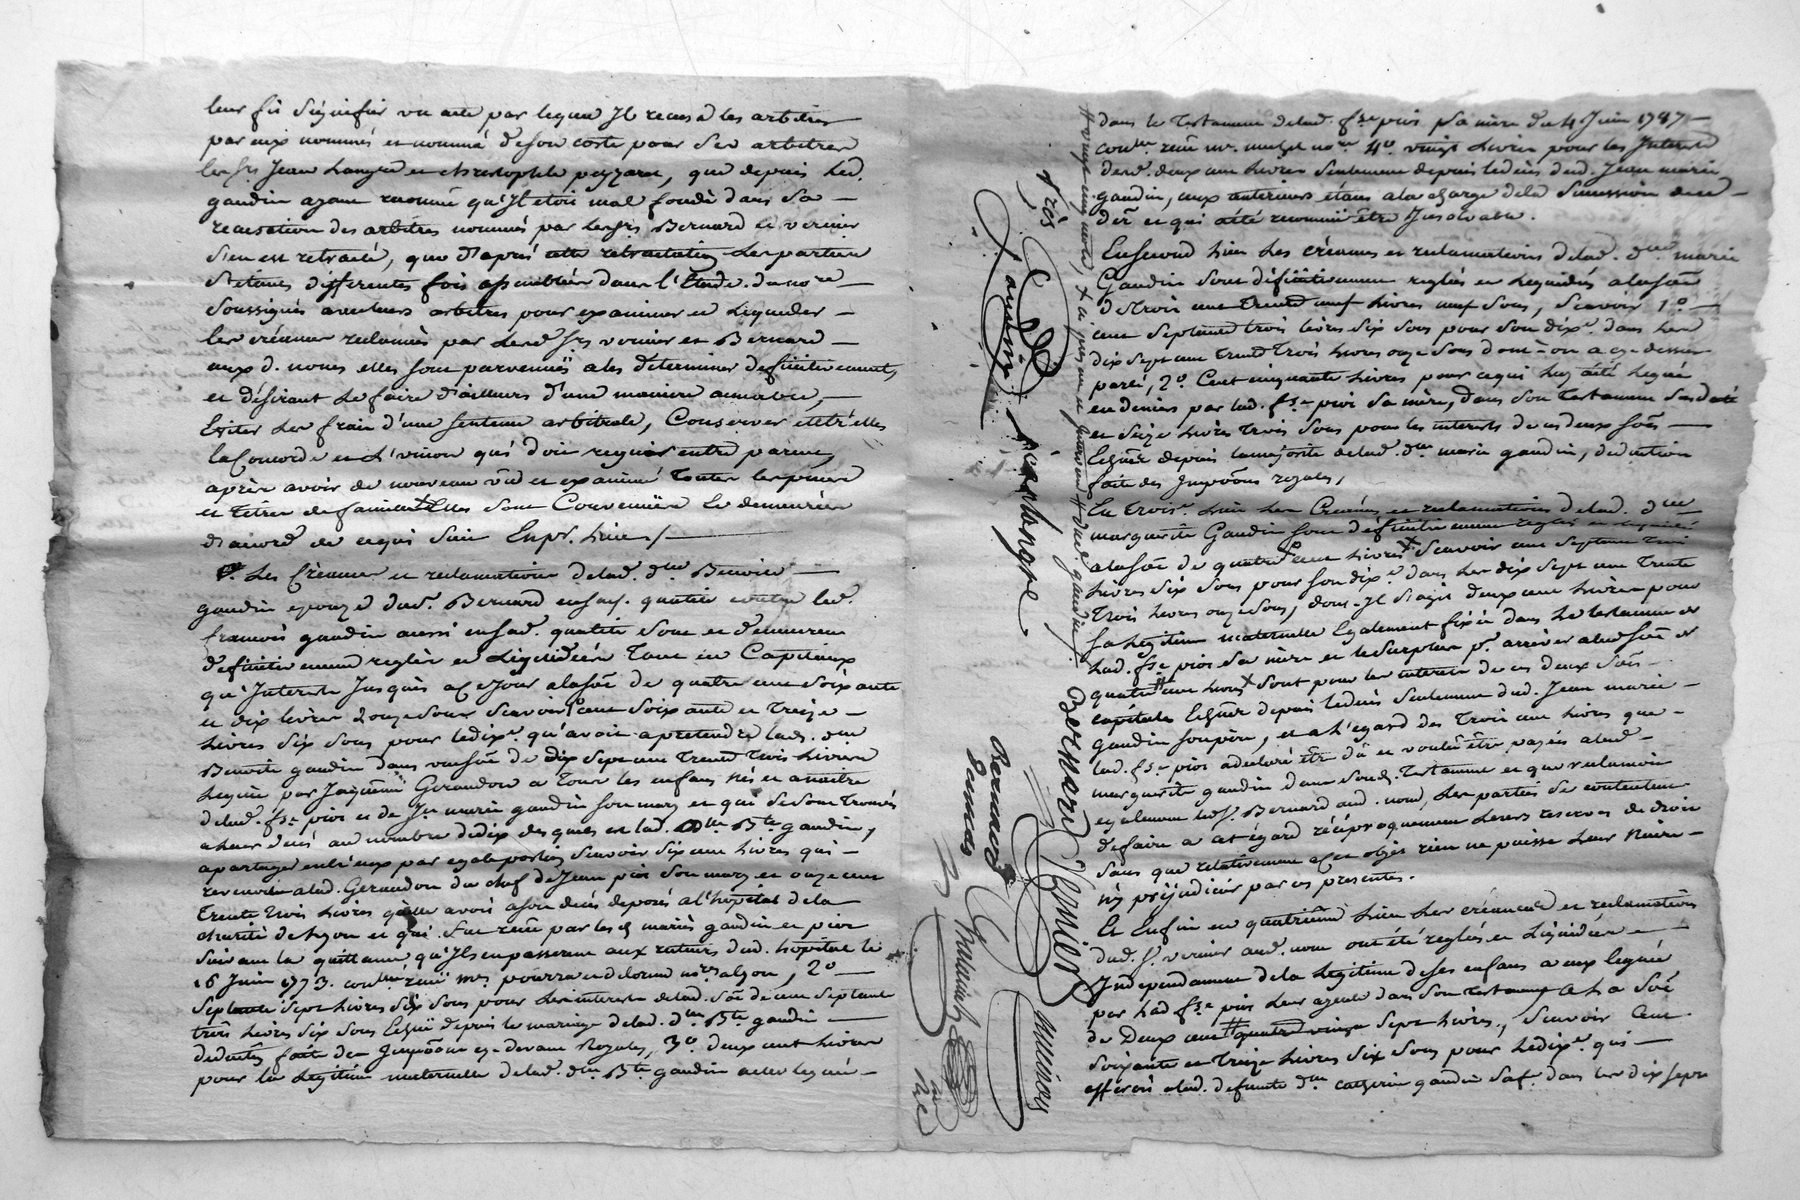 leur fit signifier un acte par lequel Il recusa les arbitres
par eux nommés et nomma de son costé pour ses arbitres
les Srs Jean et christophle que depuis led.
gaudin ayant reconnu qu'Il étoit mal fondé dans sa
recusation des arbitres nommés par lesd. Srs Bernard et vernier
s'en est retracté, que d'après cette retractation les parties
se étant differentes fois assemblées dans l'Etude du no.re
soussigné avec leurs arbitres pour examiner et liquider
les créances reclamées par lesd. Srs vernier et Bernard
aux d. noms elles sont parvenues a les determiner definitivement,
et désirant le faire d'ailleurs d'une maniere amiable,
Eviter les frais d'une sentence arbitrale, Conserver entr'elles
la Concorde et L'union qui doit regner entre parents
après avoir de nouveau vu et examiné toutes les pieces
et titres de famille Elles sont Convenües et demeurées
d'accord de ce qui suit En pr. lieu /.
Les Créances et reclamations de lad. dlle Benoite
gaudin epouze dud. Bernard en sad. qualité contre led.
francois gaudin aussi en sad. qualité sont et demeurent
definitivement reglées et Liquidées Tant en Capitaux
qu'Interets Jusqu'à ce Jour a la sôe de quatre cent soixante
et dix livres onze sous scavoir 1° cent soixante et treize
livres six sous pour le dixe qu'avoit a pretendre lad. dlle
Benoite gaudin dans une sôe de dix sept cent trente trois livres
leguée par Jaquême Girandon a tous les enfans nés et a naitre
de lad. fse piot et de Jn marie gaudin son mary et qui se sont trouvés
a leur décès au nombre de dix desquels est lad. dlle Bte gaudin,
a partager entr'eux par egale portion scavoir six cent livres qui
revenoit a lad. Girandon du chef de Jean piot son mary et onze cent
trente trois livres qu'elle avoit a son décès deposés a l'hopital de la
charité de Lyon et qui fut retiré par les d. mariés gaudin et piot
suivant la quittance qu'Ils en passerent aux recteurs dud. hopital le
16 Juin 1773. reçue Mes et delorme nores a Lyon, 2°
septante sept livres six sous pour les interets de lad. sôe de cent septante
trois livres six sous Echus depuis le mariage de lad. dlle Bte gaudin
deduction faite des Impôôns cy devant Royales, 3° deux cent livres
pour la legitime maternelle de lad. dlle Bte gaudin a elle leguée
dans le Testament de lad. fse piot sa mere du 4 Juin 1787
no.re 4° vingt livres pour les Interets
desd. deux cent livres seulement depuis le décès dud. Jean marie
gaudin, ceux anterieurs étant a la charge de la succession dud.
der et qui a été reconnu être Insolvable.
En second lieu Les créances et reclamations de lad. dlle marie
Gaudin sont définitivement reglées et Liquidées a la sôe
de trois cent trente neuf livres neuf sous, scavoir 1°
cent septante trois livres six sous pour son dixe dans les
dix sept cent trente trois livres onze sous dont on a cy dessus
parlé, 2° Cent cinquante livres pour ce qui luy a été legué
en deniers par lad. fse piot sa mère, dans son Testament susdaté
et seize livres trois sous pour les interets de ces deux sôes
Echus depuis la majorité de lad. dlle marie gaudin, deduction
faite des Impôôns royales,
En trois. lieu Les Créances et reclamations de lad. dlle
marguerite Gaudin sont définitivement reglées et liquidées
a la sôe de quatre cent livres scavoir cent septante trois
livres six sous pour son dixe dans les dix sept cent trente
trois livres onze sous, dont Il s'agit deux cent livres pour
sa legitime maternelle Egalement fixée dans le testament de
lad. fse piot sa mère et le surplus pr. arriver a lad. sôe de
quatre cent livres sont pour les interets de ces deux sôes
capitales Echus depuis le décès seulement dud. Jean marie
gaudin son père, et a l'egard des trois cent livres que
lad. fse piot a declaré être dû et voulu être payés a lad.
marguerite gaudin dans son d. Testament et que reclamoit
egalement led. Sr Bernard aud. nom, Les parties se contentent
de faire a cet égard réciproquement leurs reserves de droit
sans que relativement a cet objet rien ne puisse leur nuire
ny prejudicier par ces presentes.
Et Enfin en quatrième lieu Les créances et reclamations
dud. Sr vernier aud. nom ont été reglées et Liquidées
Independament de la legitime de ses enfans a eux leguée
par lad fse piot leur ayeule dans son testament a la sôe
de Deux cent quatre vingt sept livres, scavoir Cent
soixante et treize livres six sous pour le dixe qui
afféroit a lad. defunte dlle catherine gaudin sa fe. dans les dix sept
Gaudin
Bernard
Vernier
Bernard